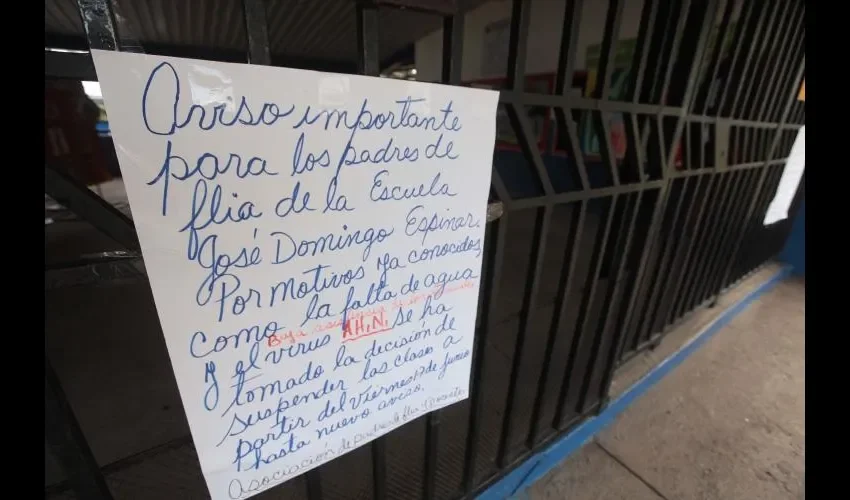 Aviso importante
para los padres de
flia de la Escuela
José Domingo Espinar.
Por Motivos ya conocidos,
como la falta de agua
Baja asistencia de
y el virus AH1N1 se ha
tomado la decisión de
suspender las clases a
partir del viernes 17 de junio
hasta nuevo aviso.
Asociación de padres de flia y Docente